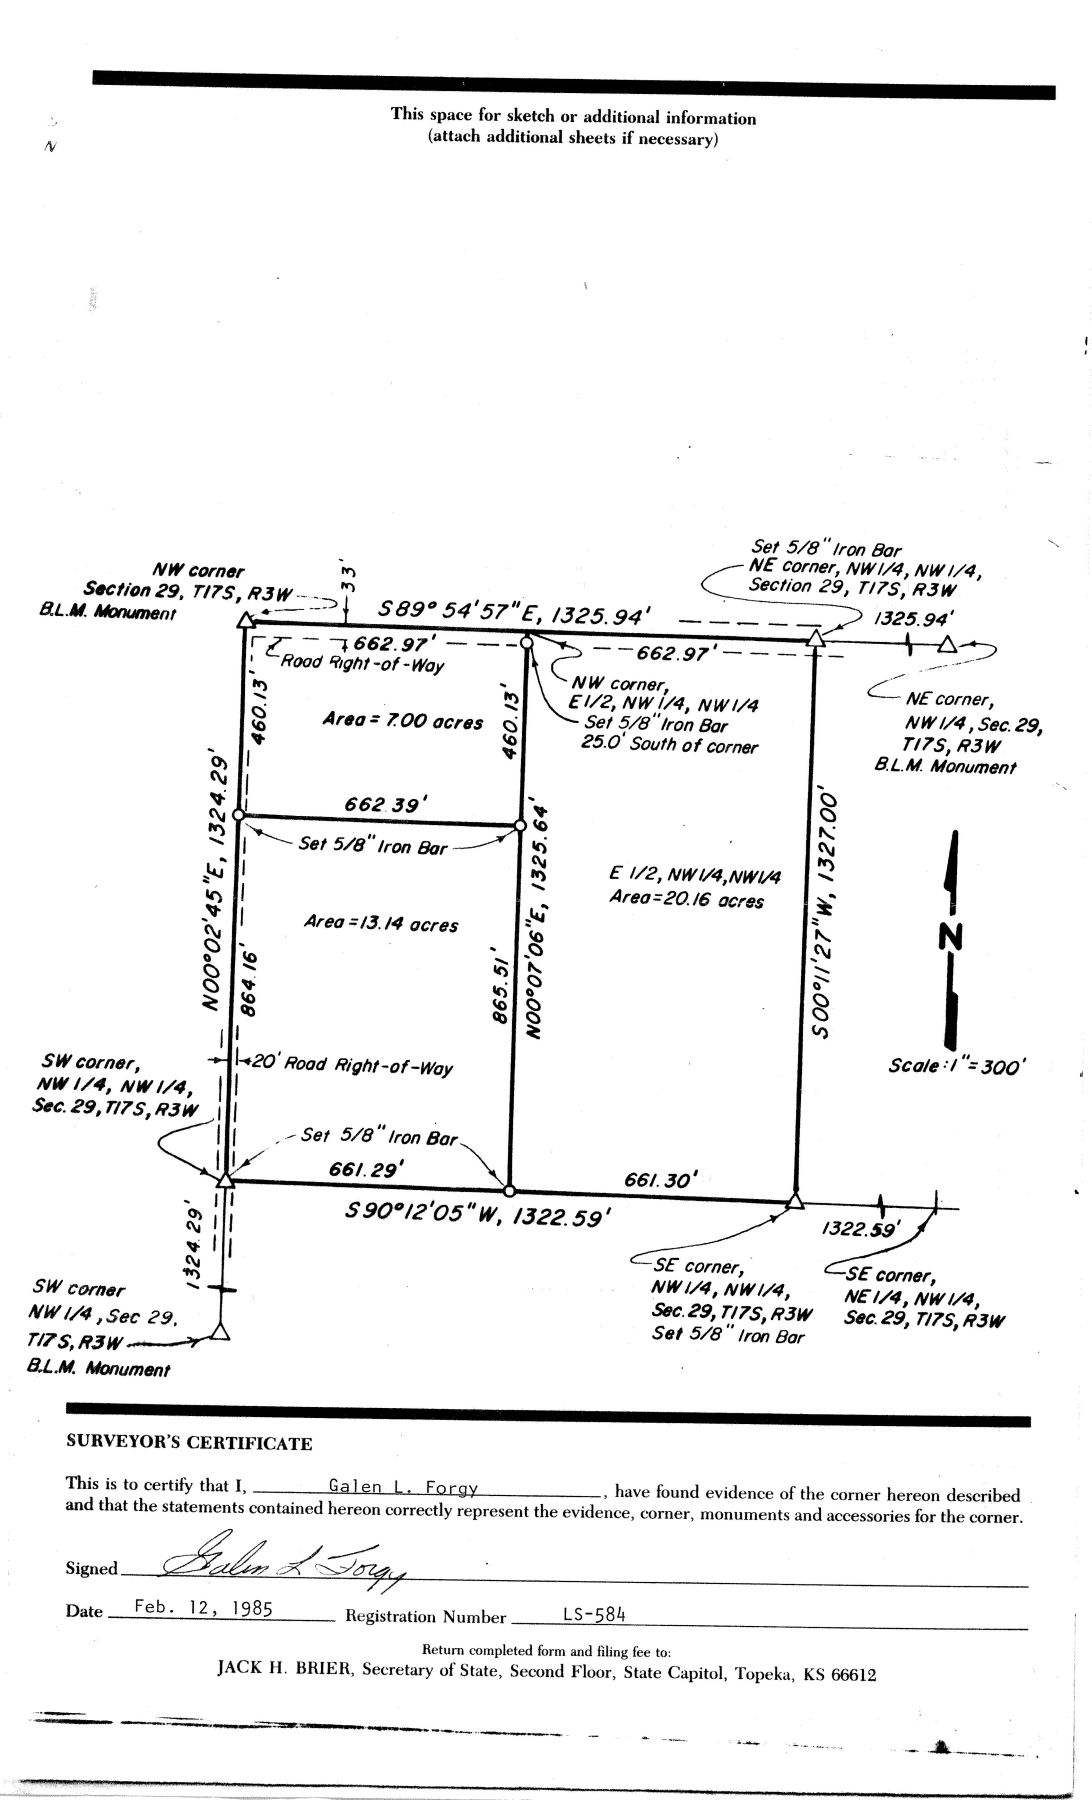 This space for sketch or additional information
(attach additional sheets if necessary)
N
Set 5/8" Iron Bar
NE corner, NW1/4, NW1/4,
Section 29, T17S, R3W
NW corner
Section 29, T17S, R3W
B.L.M. Monument
33'
S89°54'57"E, 1325.94'
1325.94'
662.97'
662.97'
Road Right-of-Way
NW corner,
E1/2, NW1/4, NW1/4
Set 5/8" Iron Bar
25.0' South of corner
NE corner,
NW1/4, Sec. 29,
T17S, R3W
B.L.M. Monument
460.13'
Area = 7.00 acres
460.13'
662.39'
Set 5/8" Iron Bar
N00°02'45"E, 1324.29'
N00°07'06"E, 1325.64'
S00°11'27"W, 1327.00'
E 1/2, NW1/4,NW1/4
Area=20.16 acres
Area=13.14 acres
864.16'
865.51'
N
Scale:1"=300'
20' Road Right-of-Way
SW corner,
NW1/4, NW1/4,
Sec. 29, T17S, R3W
Set 5/8" Iron Bar
661.29'
661.30'
S90°12'05"W, 1322.59'
1322.59'
1324.29'
SE corner,
NW1/4, NW1/4,
Sec. 29, T17S, R3W
Set 5/8" Iron Bar
SE corner,
NE1/4, NW1/4,
Sec. 29, T17S, R3W
SW corner
NW1/4, Sec 29,
T17S, R3W
B.L.M. Monument
SURVEYOR'S CERTIFICATE
This is to certify that I, Galen L. Forgy, have found evidence of the corner hereon described
and that the statements contained hereon correctly represent the evidence, corner, monuments and accessories for the corner.
Signed Galen L Forgy
Date Feb. 12, 1985 Registration Number LS-584
Return completed form and filing fee to:
JACK H. BRIER, Secretary of State, Second Floor, State Capitol, Topeka, KS 66612